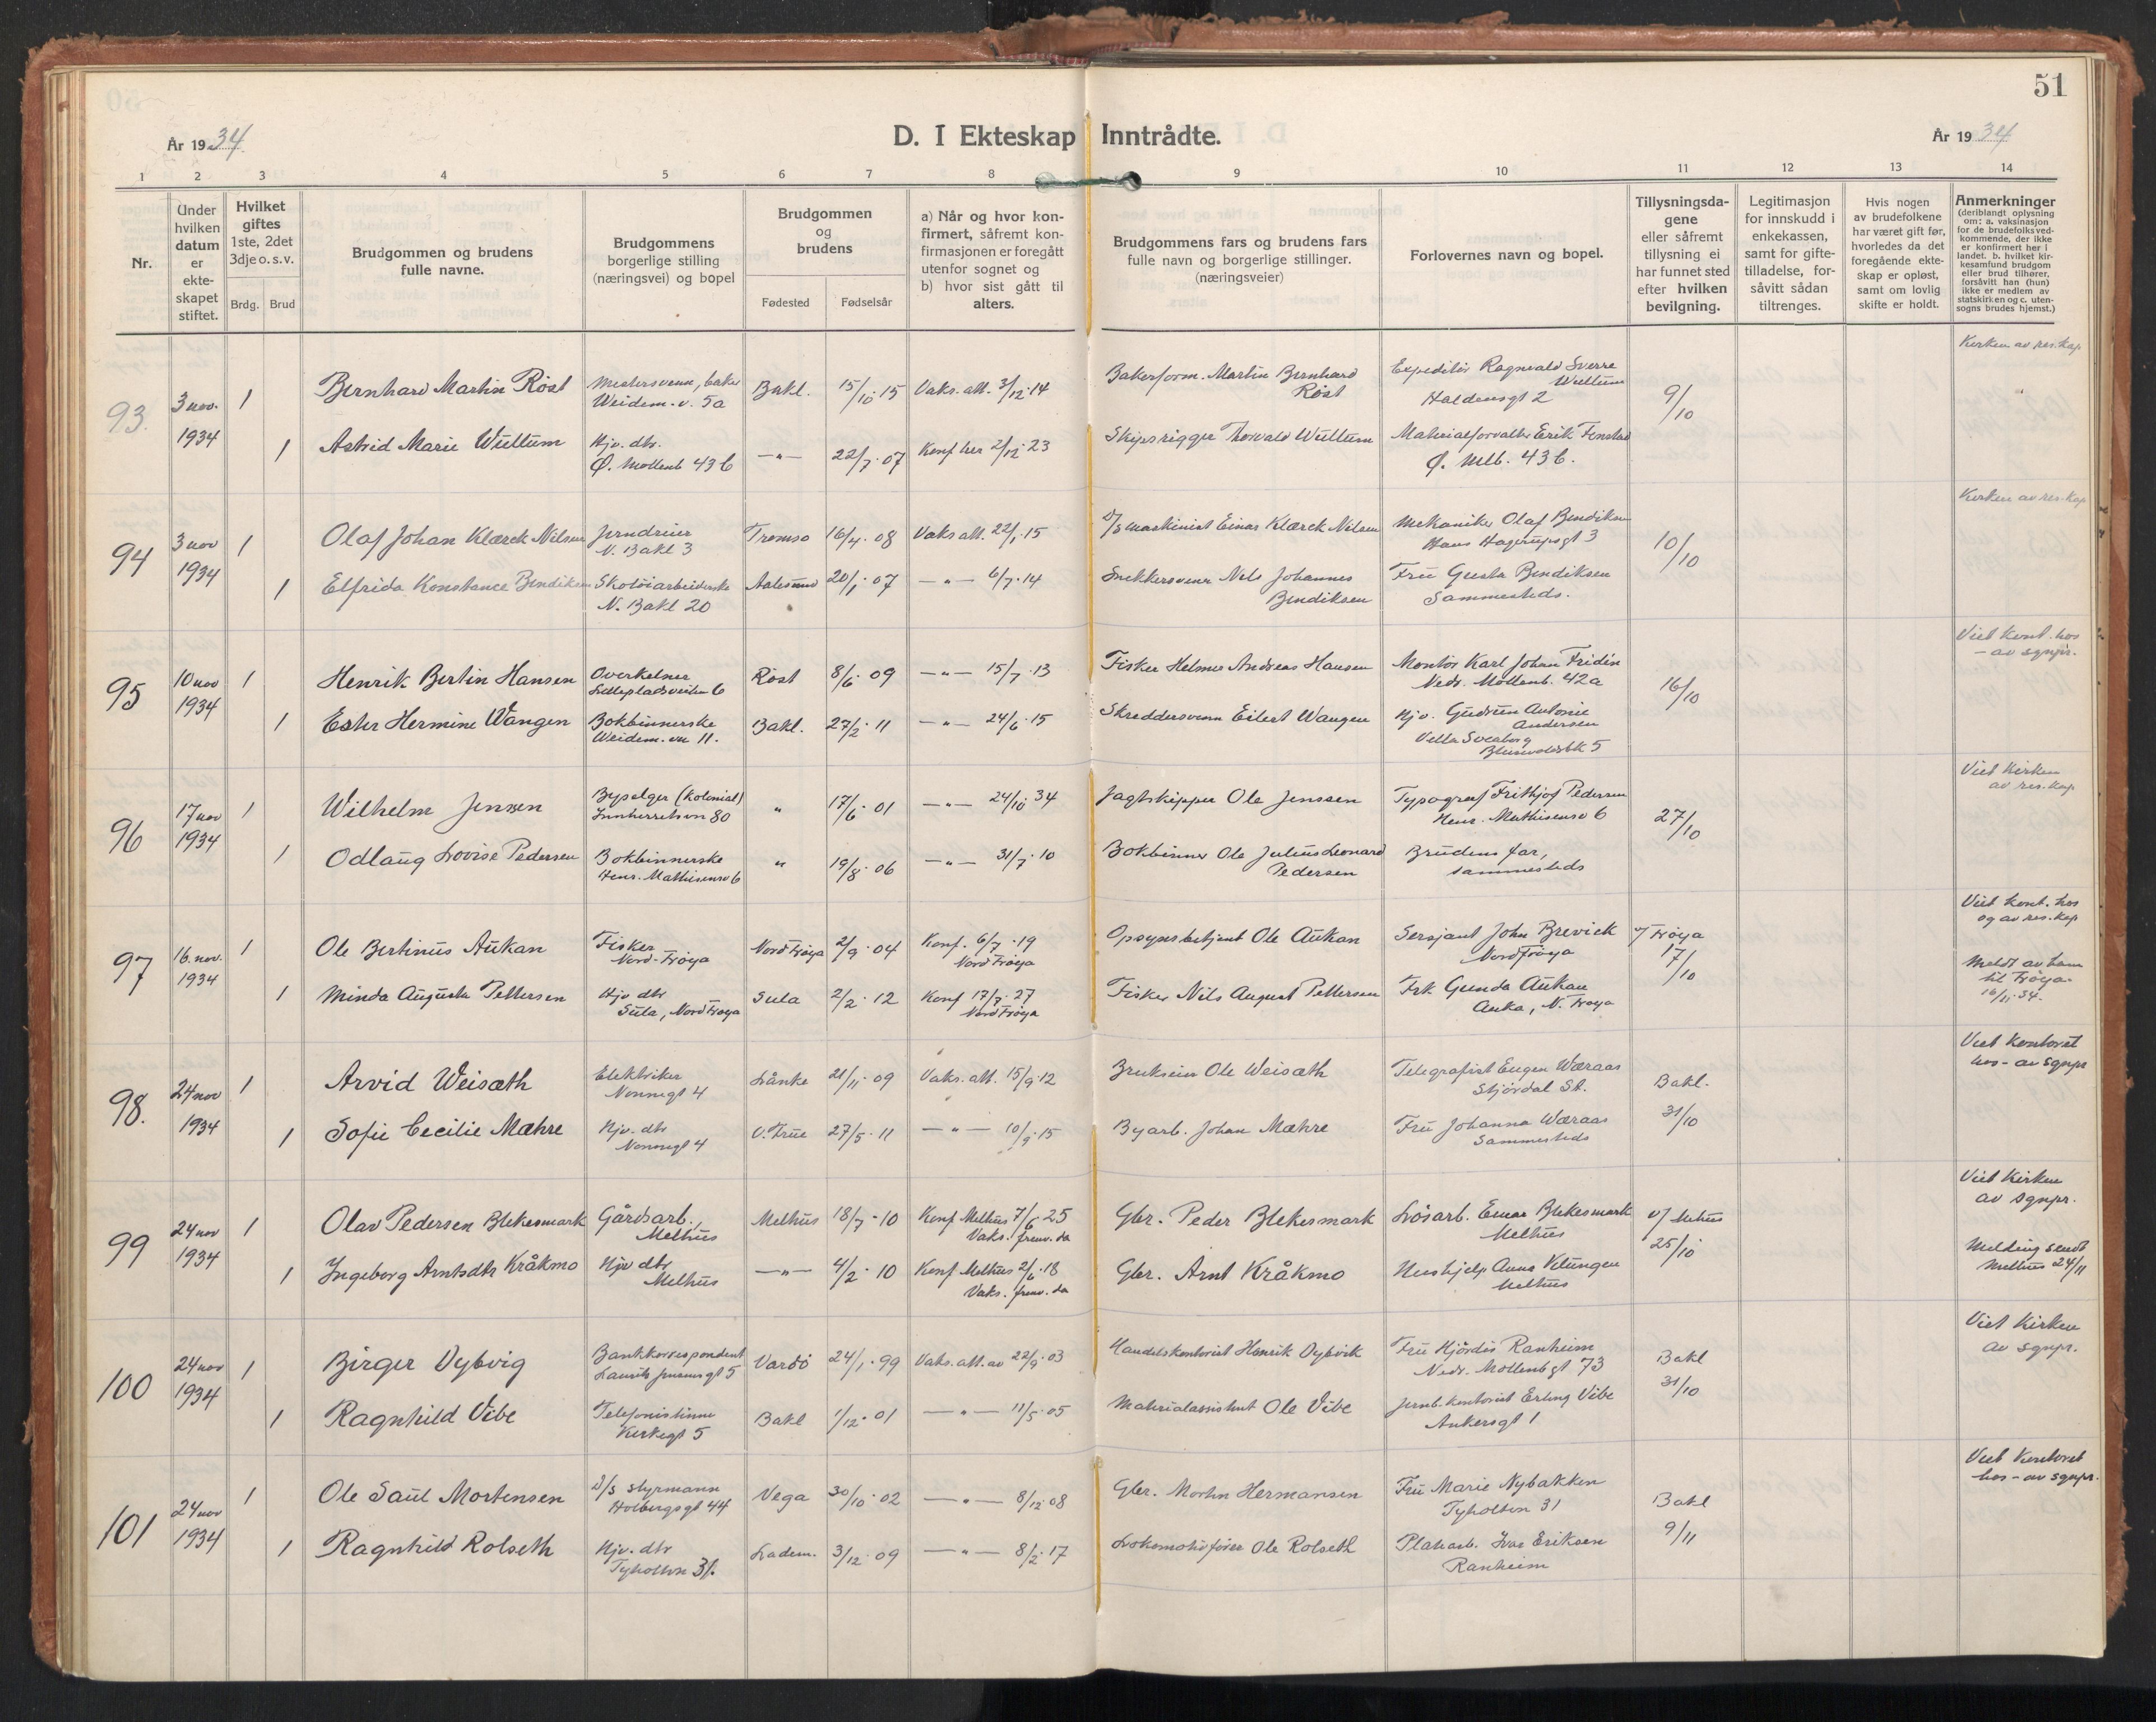 51
År 1934
D. I Ekteskap Inntrådte.
År 1934
1 2 3 4 5 6 7 8 9 10 11 12 13 14
Nr.
Under hvilken datum er ekte-skapet stiftet.
Hvilket giftes 1ste, 2det 3dje o. s. v.
Brdg. Brud
Brudgommen og brudens fulle navne.
Brudgommens borgerlige stilling (næringsvei) og bopel
Brudgommen og brudens
Fødested Fødselsår
a) Når og hvor kon-firmert, såfremt kon-firmasjonen er foregått utenfor sognet og
b) hvor sist gått til alters.
Brudgommens fars og brudens fars fulle navn og borgerlige stillinger. (næringsveier)
Forlovernes navn og bopel.
Tillysningsda-gene eller såfremt tillysning ei har funnet sted efter hvilken bevilgning.
Legitimasjon for innskudd i enkekassen, samt for gifte-tilladelse, for-såvitt sådan tiltrenges.
Hvis nogen av brudefolkene har været gift før, hvorledes da det foregående ekte-skap er opløst, samt om lovlig skifte er holdt.
Anmerkninger (deriblandt oplysning om: a. vaksinasjon for de brudefolksved-kommende, der ikke er konfirmert her i landet. b. hvilket kir-kesamfund brudgom eller brud tilhører, forsåvitt han (hun) ikke er medlem av statskirken og c. uten-sogns brudes hjemst.)
93. 3 nov. 1934 1 Bernhard Martin Röst Mestersvenn, baker Weidem.v. 5a Bakl. 15/10.15 Vaks.att. 3/12.14 Bakerform. Martin Bernhard Röst Expeditör Ragnvald Sverre Wullum Haldensgt 2 9/10 Kirken av res.kap
1 Astrid Marie Wullum Hjv. dtr. Ø. Mollenb 43 b —"— 22/7.07 Konf her 2/12 23 Skipsrigger Thorvald Wullum Materialforvalter Erik Fenstad Ø. Mlb. 43 b.
94 3 nov 1934 1 Olaf Johan Klærck Nilsen N. Bakl 3 Tromsø 16/4.08 Vaks att. 22/1.15 D/S maskinist Einar Klærck Nilsen Mekaniker Olaf Bendiksen Hans Hagerupsgt 3 10/10 Kirken av res.kap
1 Elfrida Konstance Bendiksen Skotöiarbeiderske N. Bakl 20 Aalesund 20/1.07 —"— 6/7.14 Snekkersvenn Nils Johannes Bendiksen Fru Gusta Bendiksen Sammesteds.
95 10 nov 1934 1 Henrik Bertin Hansen Overkelner Lillepladsveien 6 Röst 8/6 09 —"— 15/7.13 Fisker Helmer Andreas Hansen Montör Karl Johan Fridén Nedr. Mollenb. 42a 16/10 Viet kont. hos — av sgnpr.
1 Ester Hermine Wangen Bokbinnerske Weidem. vn 11. Bakl. 27/2.11 —"— 24/6.15 Skreddersvenn Eilert Wangen Hjv. Gudrun Antonie Andersen Villa Sveaborg 5
96 17 nov 1934 1 Wilhelm Jenssen Byselger (kolonial) Innherretsvn 80 " 17/6 01 —"— 24/10 34 Jagtskipper Ole Jenssen Typograf Frithjof Pedersen Henr. Mathisensv 6 27/10 Viet Kirken av res.kap
1 Odlaug Lovise Pedersen Bokbinnerske Henr. Mathisensv 6 " 19/8.06 —"— 31/7.10 Bokbinner Ole Julius Leonard Pedersen Brudens far, sammesteds
97 16. nov. 1934 1 Ole Bertinus Aukan Fisker Nord-Fröya Nord Fröya 2/9.04 Konf. 6/7.19 Nord Fröya Opsynsbetjent Ole Aukan Sersjant John Brevick Nordfröya i/ Fröya 17/10 Viet kont. hos og av res.kap
1 Minda Augusta Pettersen Hjv dtr Sula, Nord Fröya Sula 2/2.12 Konf 17/7.27 Nord Fröya Fisker Nils August Pettersen Frk Gunda Aukan Auka, N. Fröya Meldt av ham til Fröya 16/11.34.
98. 24 nov 1934 1 Arvid Weisæth Elektriker Nonnegt 4 Lånke 21/11.09 Vaks.att. 15/9.12 Brukseier Ole Weisæth Telegrafist Eugen Wæraas Stjördal St. Bakl. 31/10 Viet kontoret hos — av sgnpr
1 Sofie Cecilie Mæhre Hjv. dtr Nonnegt 4 27/5.11 —"— 10/9.15 Byarb. Johan Mæhre Fru Johanna Wæraas Sammesteds
99 24 nov 1934 1 Olav Pedersen Blekesmark Gårdsarb., Melhus Melhus 18/7-10 Konf Melhus 7/6 25 Vaks. fremv. da Gbr. Peder Blekesmark Lösarb. Einar Blekesmark Melhus i/ Melhus 25/10 Viet Kirken av sgnpr.
1 Ingeborg Arntsdtr Kråkmo Hjv dtr Melhus —"— 4/2.10 Konf Melhus 2/6.18 Vaks. fremv. da Gbr. Arnt Kråkmo Hushjelp Anna Klungen Melhus Melding sendt Melhus 24/11
100 24 nov 1934 1 Birger Dybvig Bankkorrespondent Laurits Jensensgt 5 Vardö 24/1.99 Vaks.att. av 22/9.03 Handelskontorist Henrik Dybvik Fru Hjördis Ranheim Nedr. Mollenbgt 73 Bakl 31/10 Viet Kirken av sgnpr.
1 Ragnhild Vibe Telefonistinne Kirkegt 5 Bakl 1/12.01 —"— 11/5.05 Materialassistent Ole Vibe Jernb.kontorist Erling Vibe Ankersgt 1
101 24 nov 1934 1 Ole Saul Mortensen D/S styrmann Holbergsgt 44 Vega 30/10.02 —"— 8/12.08 Gbr. Morten Hermansen Fru Marie Nybakken Tyholtvn 31 Bakl 9/11 Viet Kontoret hos — av sgnpr.
1 Ragnhild Rolseth Hjv. dtr Tyholtvn 31. Ladem. 3/12.09 —"— 8/2.17 Lokomotivförer Ole Rolseth Platearb. Ivar Eriksen Ranheim